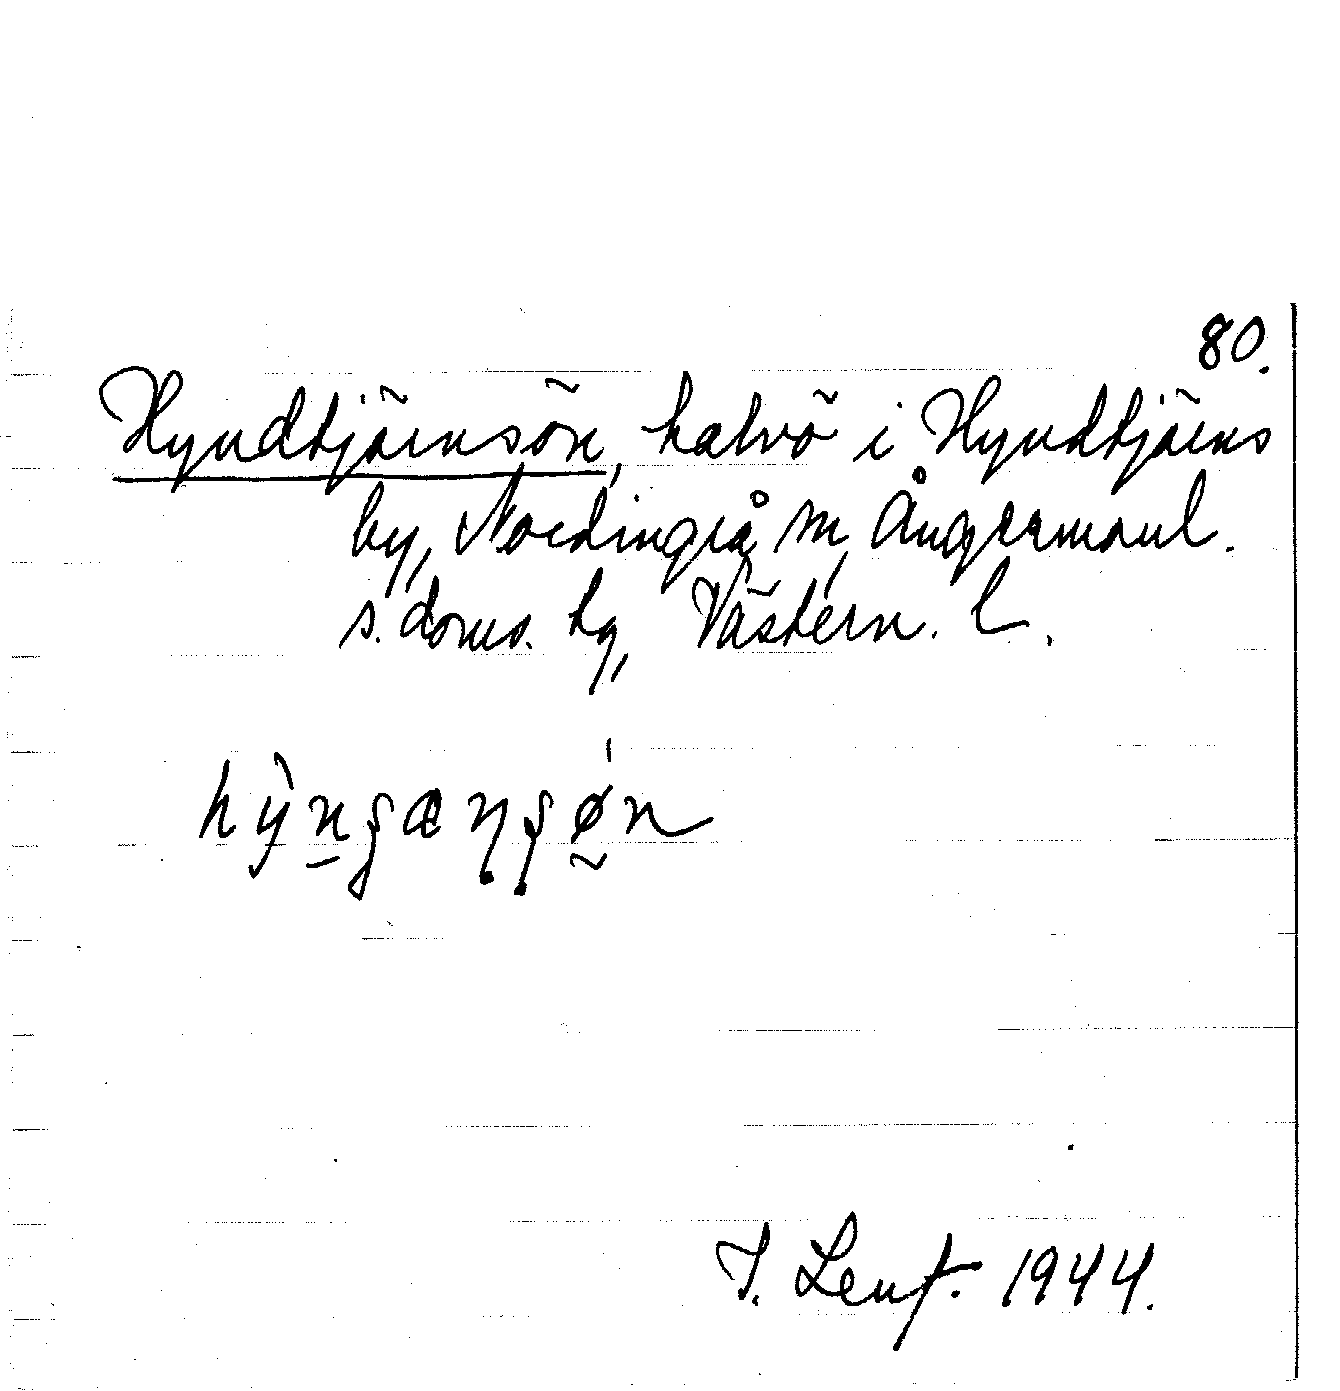 80.
Hyndtjärnsön, halvö i Hyndtjärns
by, Nordingrå sn, Ångermanl.
s. doms. hg, Västern. l.
J. Lenf. 1944.